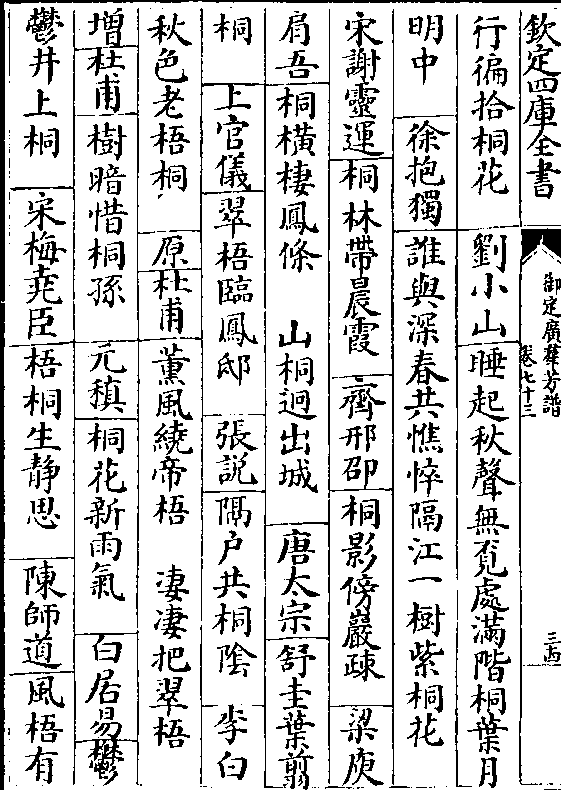 欽定四庫全書
御定廣羣芳譜
卷七十三
行徧拾桐花 劉小山睡起秋聲無覓處滿階桐葉月
明中 徐抱獨誰與深春共憔悴隔江一樹紫桐花
宋謝靈運桐林帶晨霞 齊邢邵桐影傍巖疎 梁庾
肩吾桐橫棲鳳條 山桐迥出城 唐太宗舒圭葉翦
桐 上官儀翠梧臨鳳邸 張說隔户共桐陰 李白
秋色老梧桐 原杜甫薰風繞帝梧 凄凄把翠梧
增杜甫樹暗惜桐孫 元稹桐花新雨氣 白居易鬱
鬱井上桐 宋梅堯臣梧桐生静思 陳師道風梧有